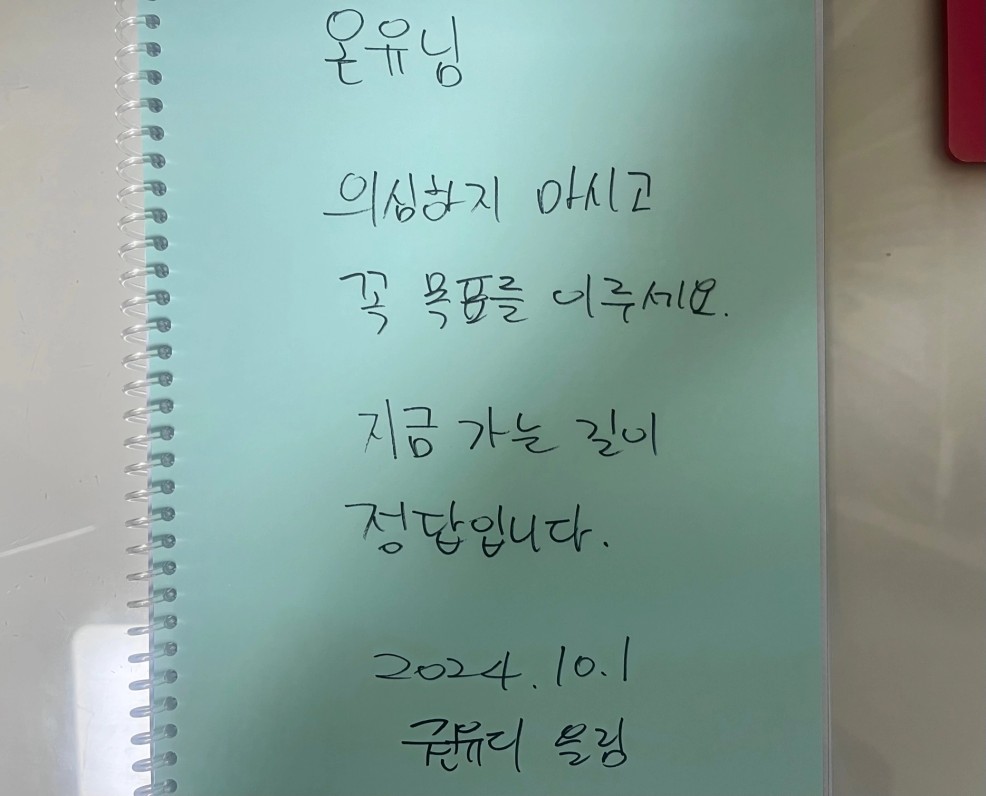 온유님
의심하지 마시고
꼭 목표를 이루세요.
지금 가는 길이
정답입니다.
2024.10.1
권유디 올림